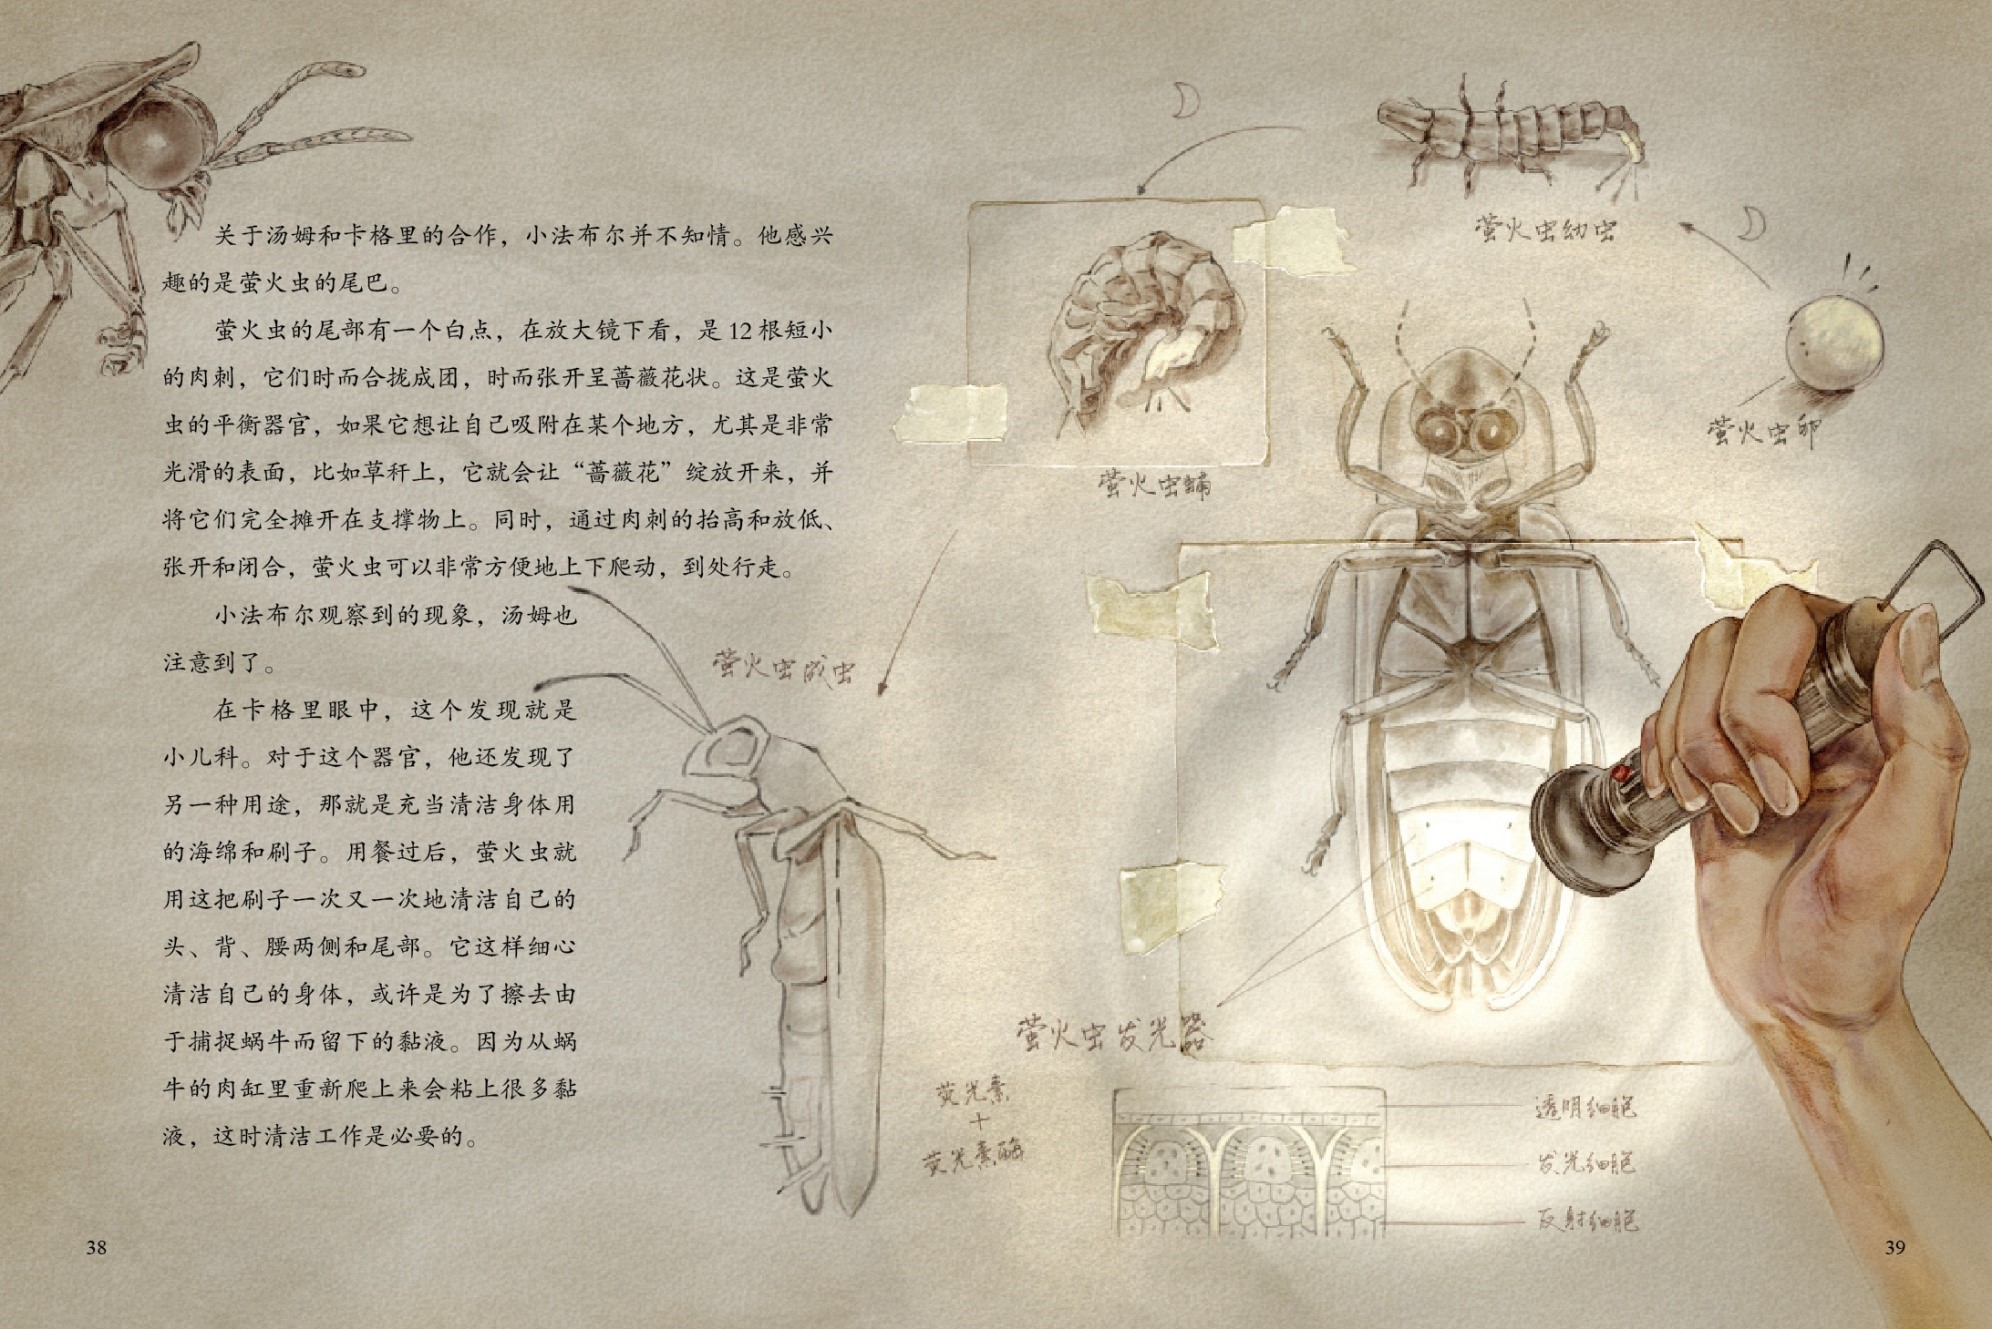 关于汤姆和卡格里的合作，小法布尔并不知情。他感兴
趣的是萤火虫的尾巴。
萤火虫的尾部有一个白点，在放大镜下看，是12根短小
的肉刺，它们时而合拢成团，时而张开呈蔷薇花状。这是萤火
虫的平衡器官，如果它想让自己吸附在某个地方，尤其是非常
光滑的表面，比如草秆上，它就会让“蔷薇花”绽放开来，并
将它们完全摊开在支撑物上。同时，通过肉刺的抬高和放低、
张开和闭合，萤火虫可以非常方便地上下爬动，到处行走。
小法布尔观察到的现象，汤姆也
注意到了。
在卡格里眼中，这个发现就是
小儿科。对于这个器官，他还发现了
另一种用途，那就是充当清洁身体用
的海绵和刷子。用餐过后，萤火虫就
用这把刷子一次又一次地清洁自己的
头、背、腰两侧和尾部。它这样细心
清洁自己的身体，或许是为了擦去由
于捕捉蜗牛而留下的黏液。因为从蜗
牛的肉缸里重新爬上来会粘上很多黏
液，这时清洁工作是必要的。
38
萤火虫幼虫
萤火虫卵
萤火虫蛹
萤火虫成虫
萤火虫发光器
荧光素
+
荧光素酶
透明细胞
发光细胞
反射细胞
39